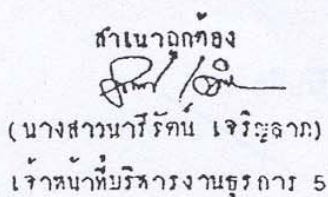 สำเนาถูกต้อง
(นางสาวนารีรัตน์ เจริญลาภ)
เจ้าหน้าที่บริหารงานธุรการ 5